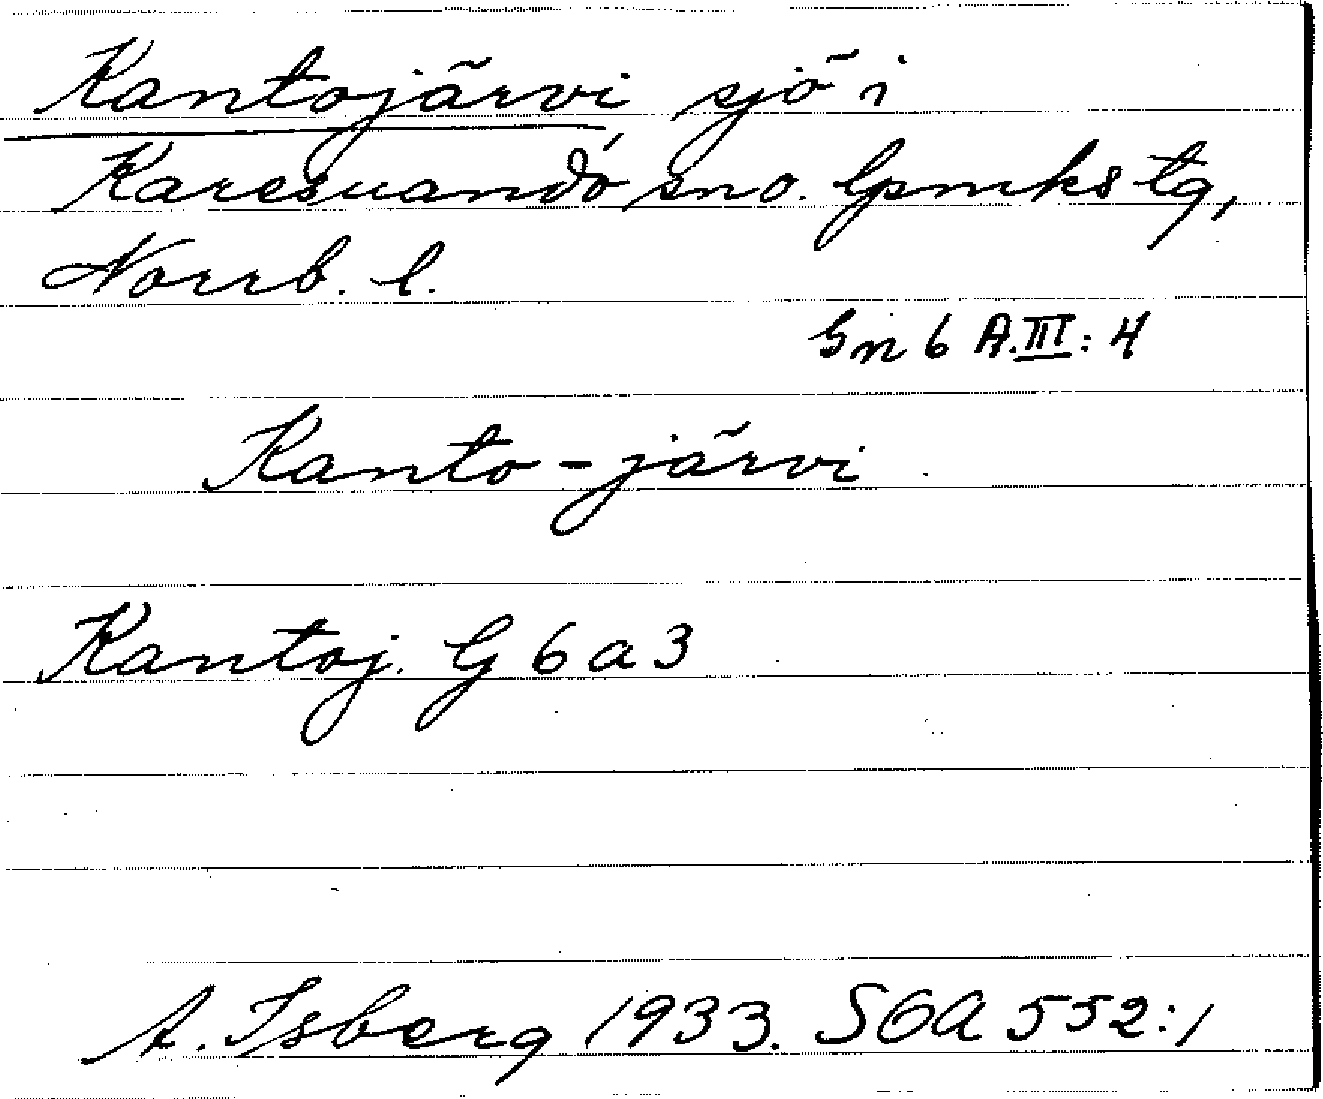 Kantojärvi sjö i
Karesuando sno. lpmks tg,
Norrb. l.
Gn 6 A.III:4
Kanto-järvi
Kantoj. G 6 a 3
A. Isberg 1933. SOA 552:1